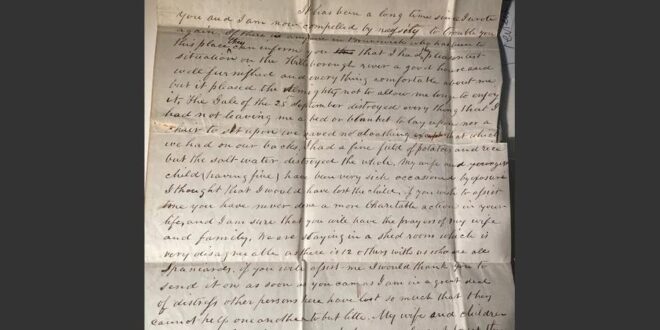 It has been a long time since I wrote
you and I am now compelled by nessity to trouble you
again. If there is any one in Brunswick who has been to
this place can inform you that I had a pleasant
situation on the Hillsborough river a good house and
well furnished and everything comfortable about me
but it pleased the Almighty not to allow me long to enjoy
it, The Gale of the 25 September destroyed every thing that I
had not leaving me a bed or blanket to lay upon nor a
chair to sit upon we saved no cloathing except that which
we had on our backs. I had a fine field of potatoes and rice
but the salt water destroyed the whole. My wife and youngest
child (having five) have been very sick occasioned by exposure
I thought that I would have lost the child. if you wish to assist
me you have never done a more Charitable action in your
life, and I am sure that you will have the prayers of my wife
and family, We are staying in a shed room which is
very disagreeable as there is 12 others with us who are all
Spaniards, if you will assist me I would thank you to
send it on as soon as you can as I am in a great deal
of distress other persons here have lost so much that they
cannot help one another to but little. My wife and children